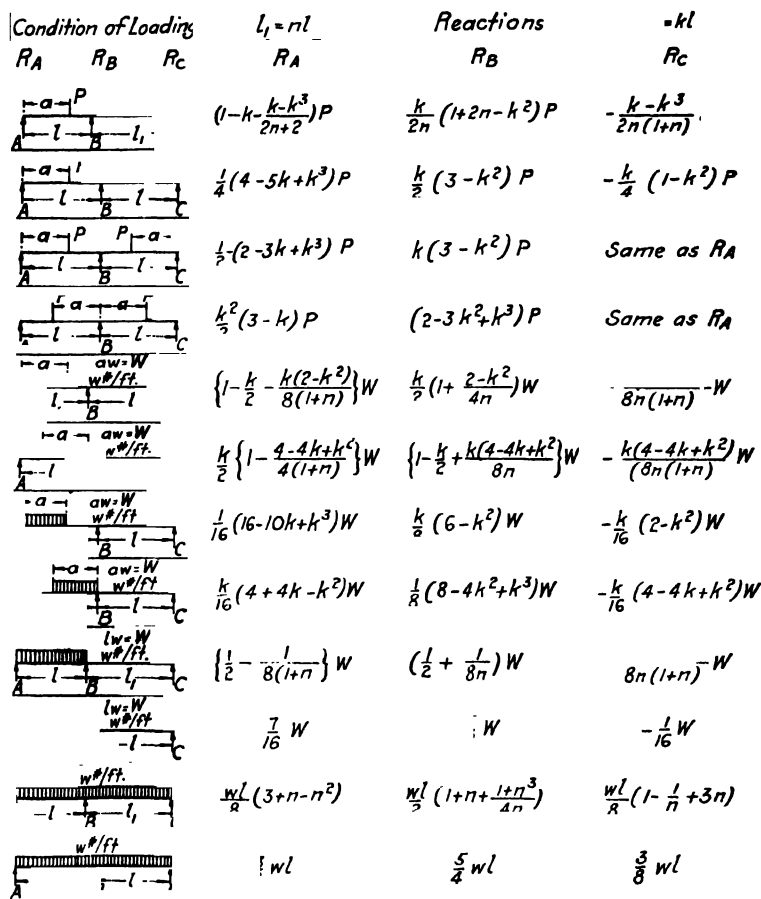 Condition of Loading l₁ = nl Reactions = kl
R_A R_B R_C R_A R_B R_C
a P
A l B l₁
(1-k-\frac{k-k^3}{2n+2})P \frac{k}{2n}(1+2n-k^2)P -\frac{k-k^3}{2n(1+n)}
a
A l B l C
\frac{1}{4}(4-5k+k^3)P \frac{k}{2}(3-k^2)P -\frac{k}{4}(1-k^2)P
a P P a
A l B l C
(2-3k+k^3)P k(3-k^2)P Same as R_A
a a
l B l C
\frac{k^2}{2}(3-k)P (2-3k^2+k^3)P Same as R_A
a aw=W
w#/ft.
l B l
{1-\frac{k}{2}-\frac{k(2-k^2)}{8(1+n)}}W \frac{k}{2}(1+\frac{2-k^2}{4n})W \frac{}{8n(1+n)}-W
a aw=W
#/ft.
A l
\frac{k}{2}{1-\frac{4-4k+k^2}{4(1+n)}}W {1-\frac{k}{2}+\frac{k(4-4k+k^2}{8n}}W -\frac{k(4-4k+k^2)}{(8n(1+n)}W
a aw=W
w#/ft
B l C
\frac{1}{16}(16-10k+k^3)W (6-k^2)W -\frac{k}{16}(2-k^2)W
a aw=W
w#/ft
B l C
\frac{k}{16}(4+4k-k^2)W \frac{1}{8}(8-4k^2+k^3)W -\frac{k}{16}(4-4k+k^2)W
lw=W
w#/ft.
A l B l₁ C
{\frac{1}{2}-\frac{1}{8(1+n)}}W (\frac{1}{2}+\frac{1}{8n})W 8n(1+n) -W
lw=W
w#/ft
-l C
\frac{7}{16}W W -\frac{1}{16}W
w#/ft.
-l B l₁
\frac{wl}{8}(3+n-n^2) \frac{wl}{2}(1+n+\frac{1+n^3}{4n}) \frac{wl}{8}(1-\frac{1}{n}+3n)
w#/ft
A l
wl \frac{5}{4}wl \frac{3}{8}wl